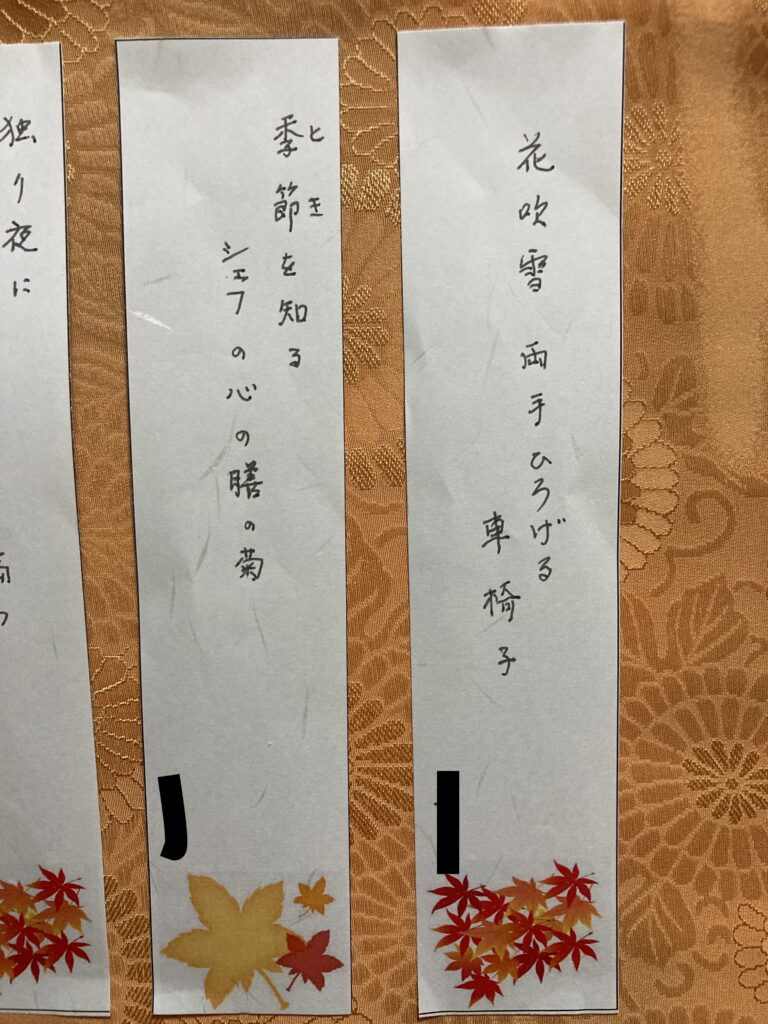 花吹雪 両手ひろげる
車椅子
季節を知る
とき
シェフの心の膳の菊
独り夜に